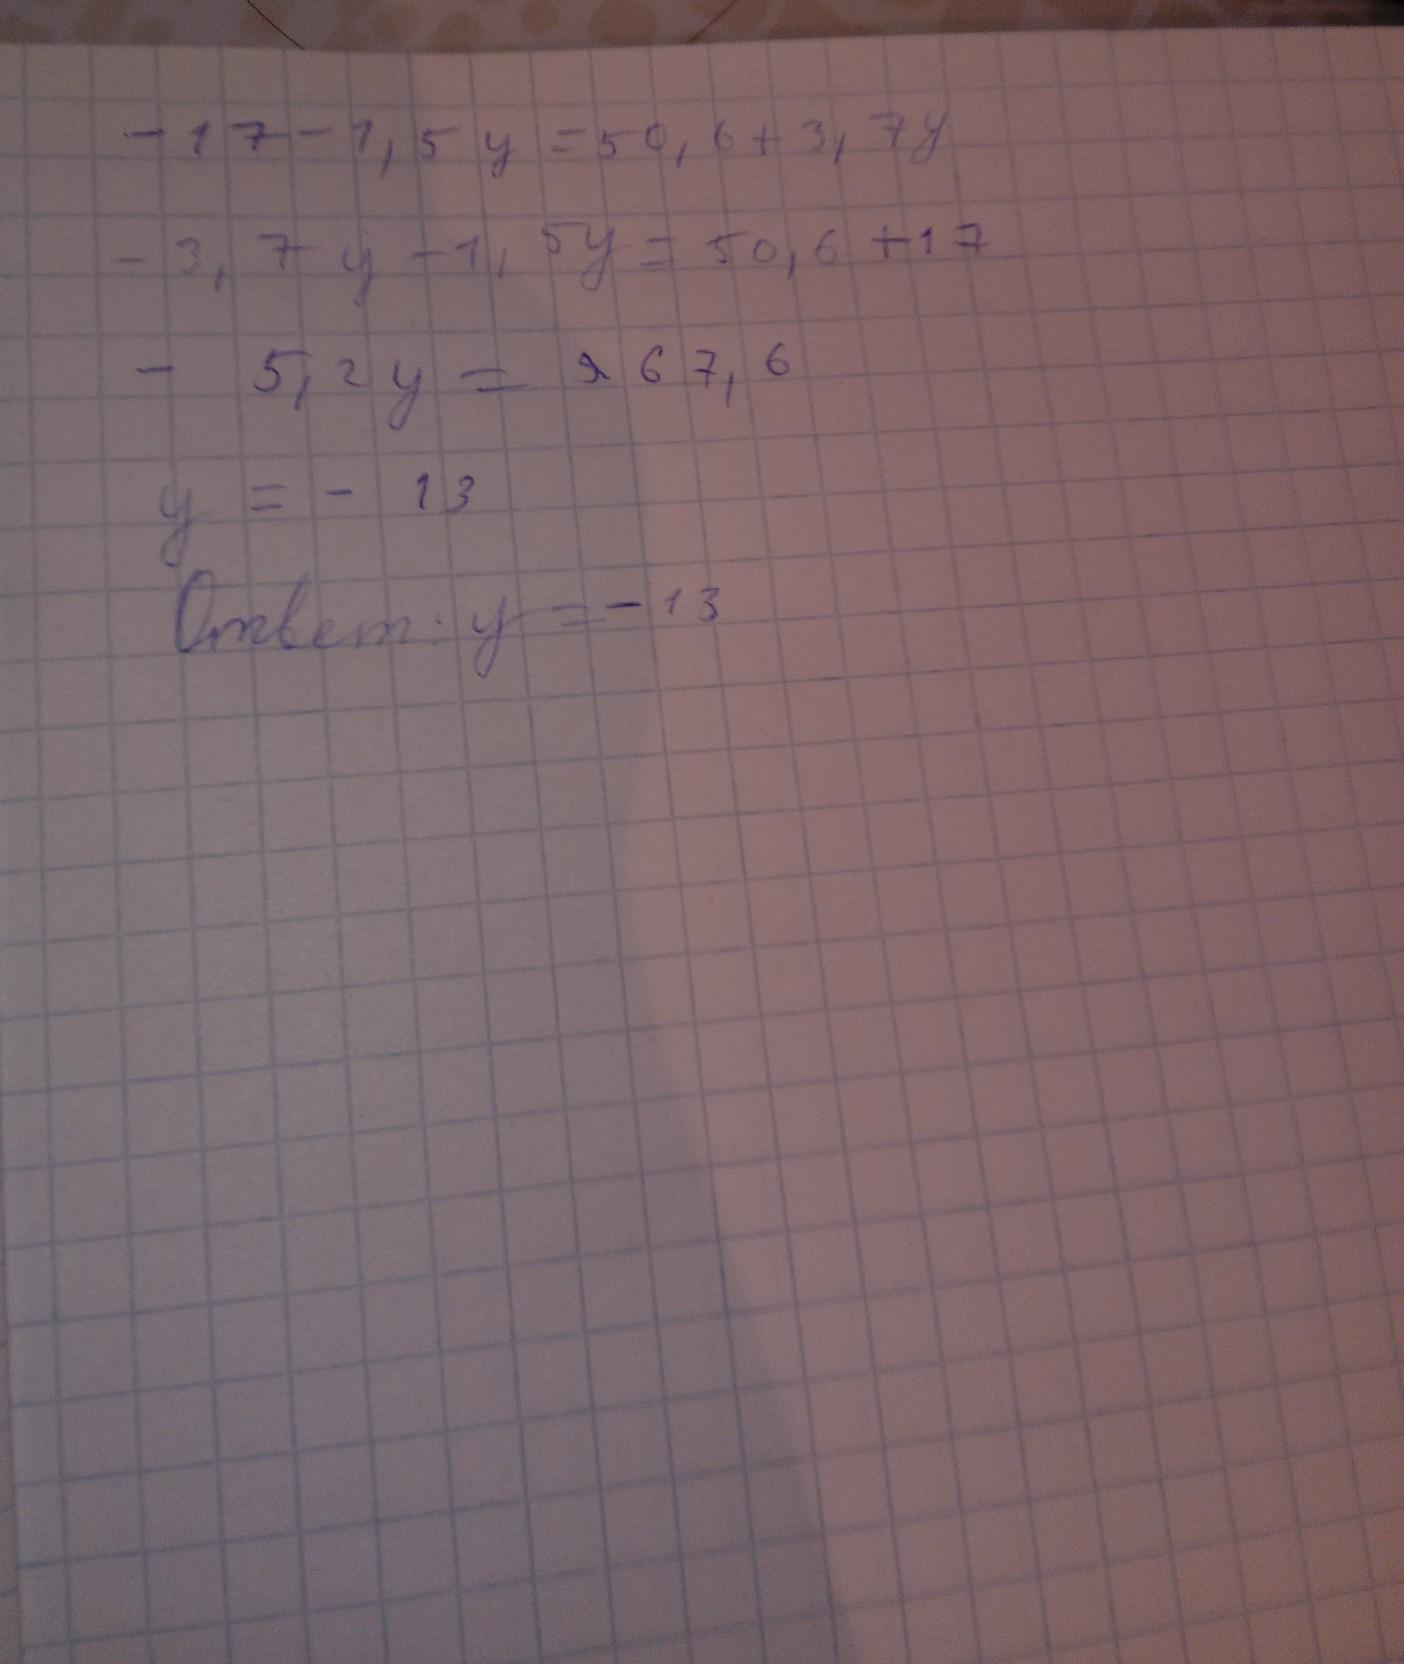 -17-1,5y=50,6+3,7y
-3,7y-1,5y=50,6+17
- 5,2y = 67,6
y = - 13
Ответ: y =-13